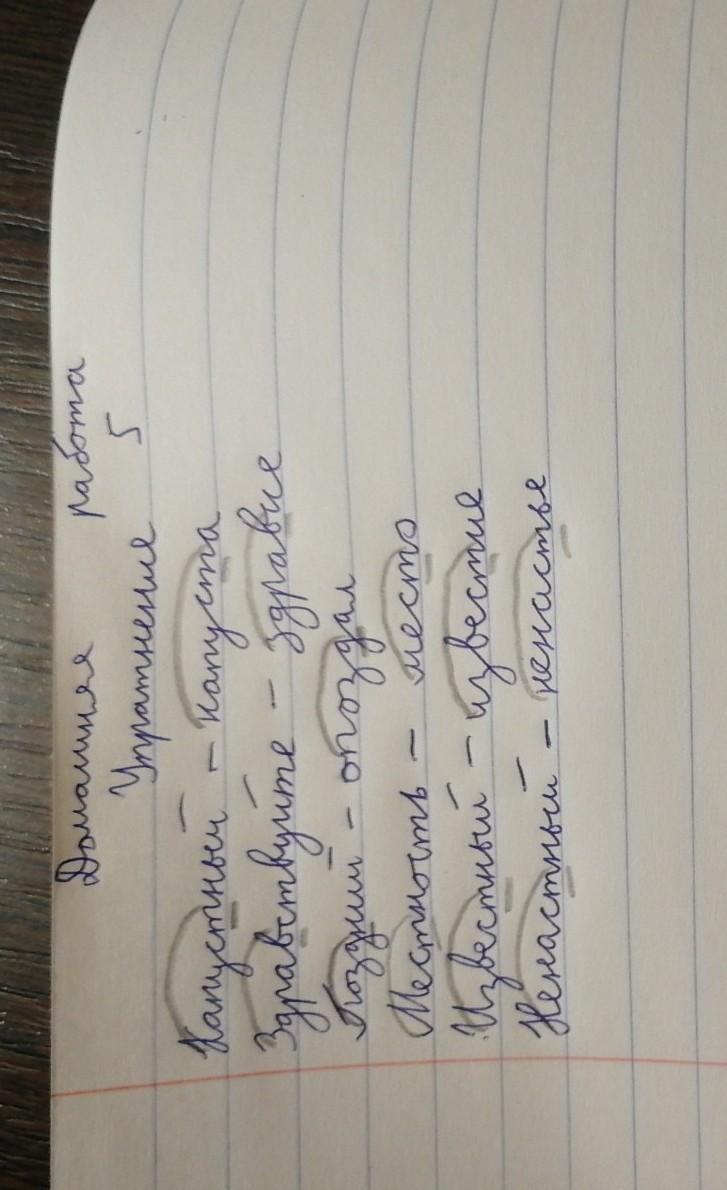 Домашняя работа
Упражнение 5
Капустный – капуста
Здравствуйте – здравие
Поздний – опоздал
Местность – место
Известный – известие
Ненастный – ненастье